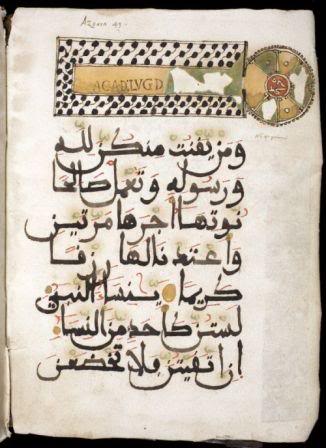 Azoara 43.
ACAD LVGD
ومن يقنت منكن لله
ورسوله وتعمل صالحا
نوتها اجرها مرتين
واعتدنا لها رزقا
كريما ينساء النبي
لستن كاحد من النسا
ان اتقيتن فلا تخضعن